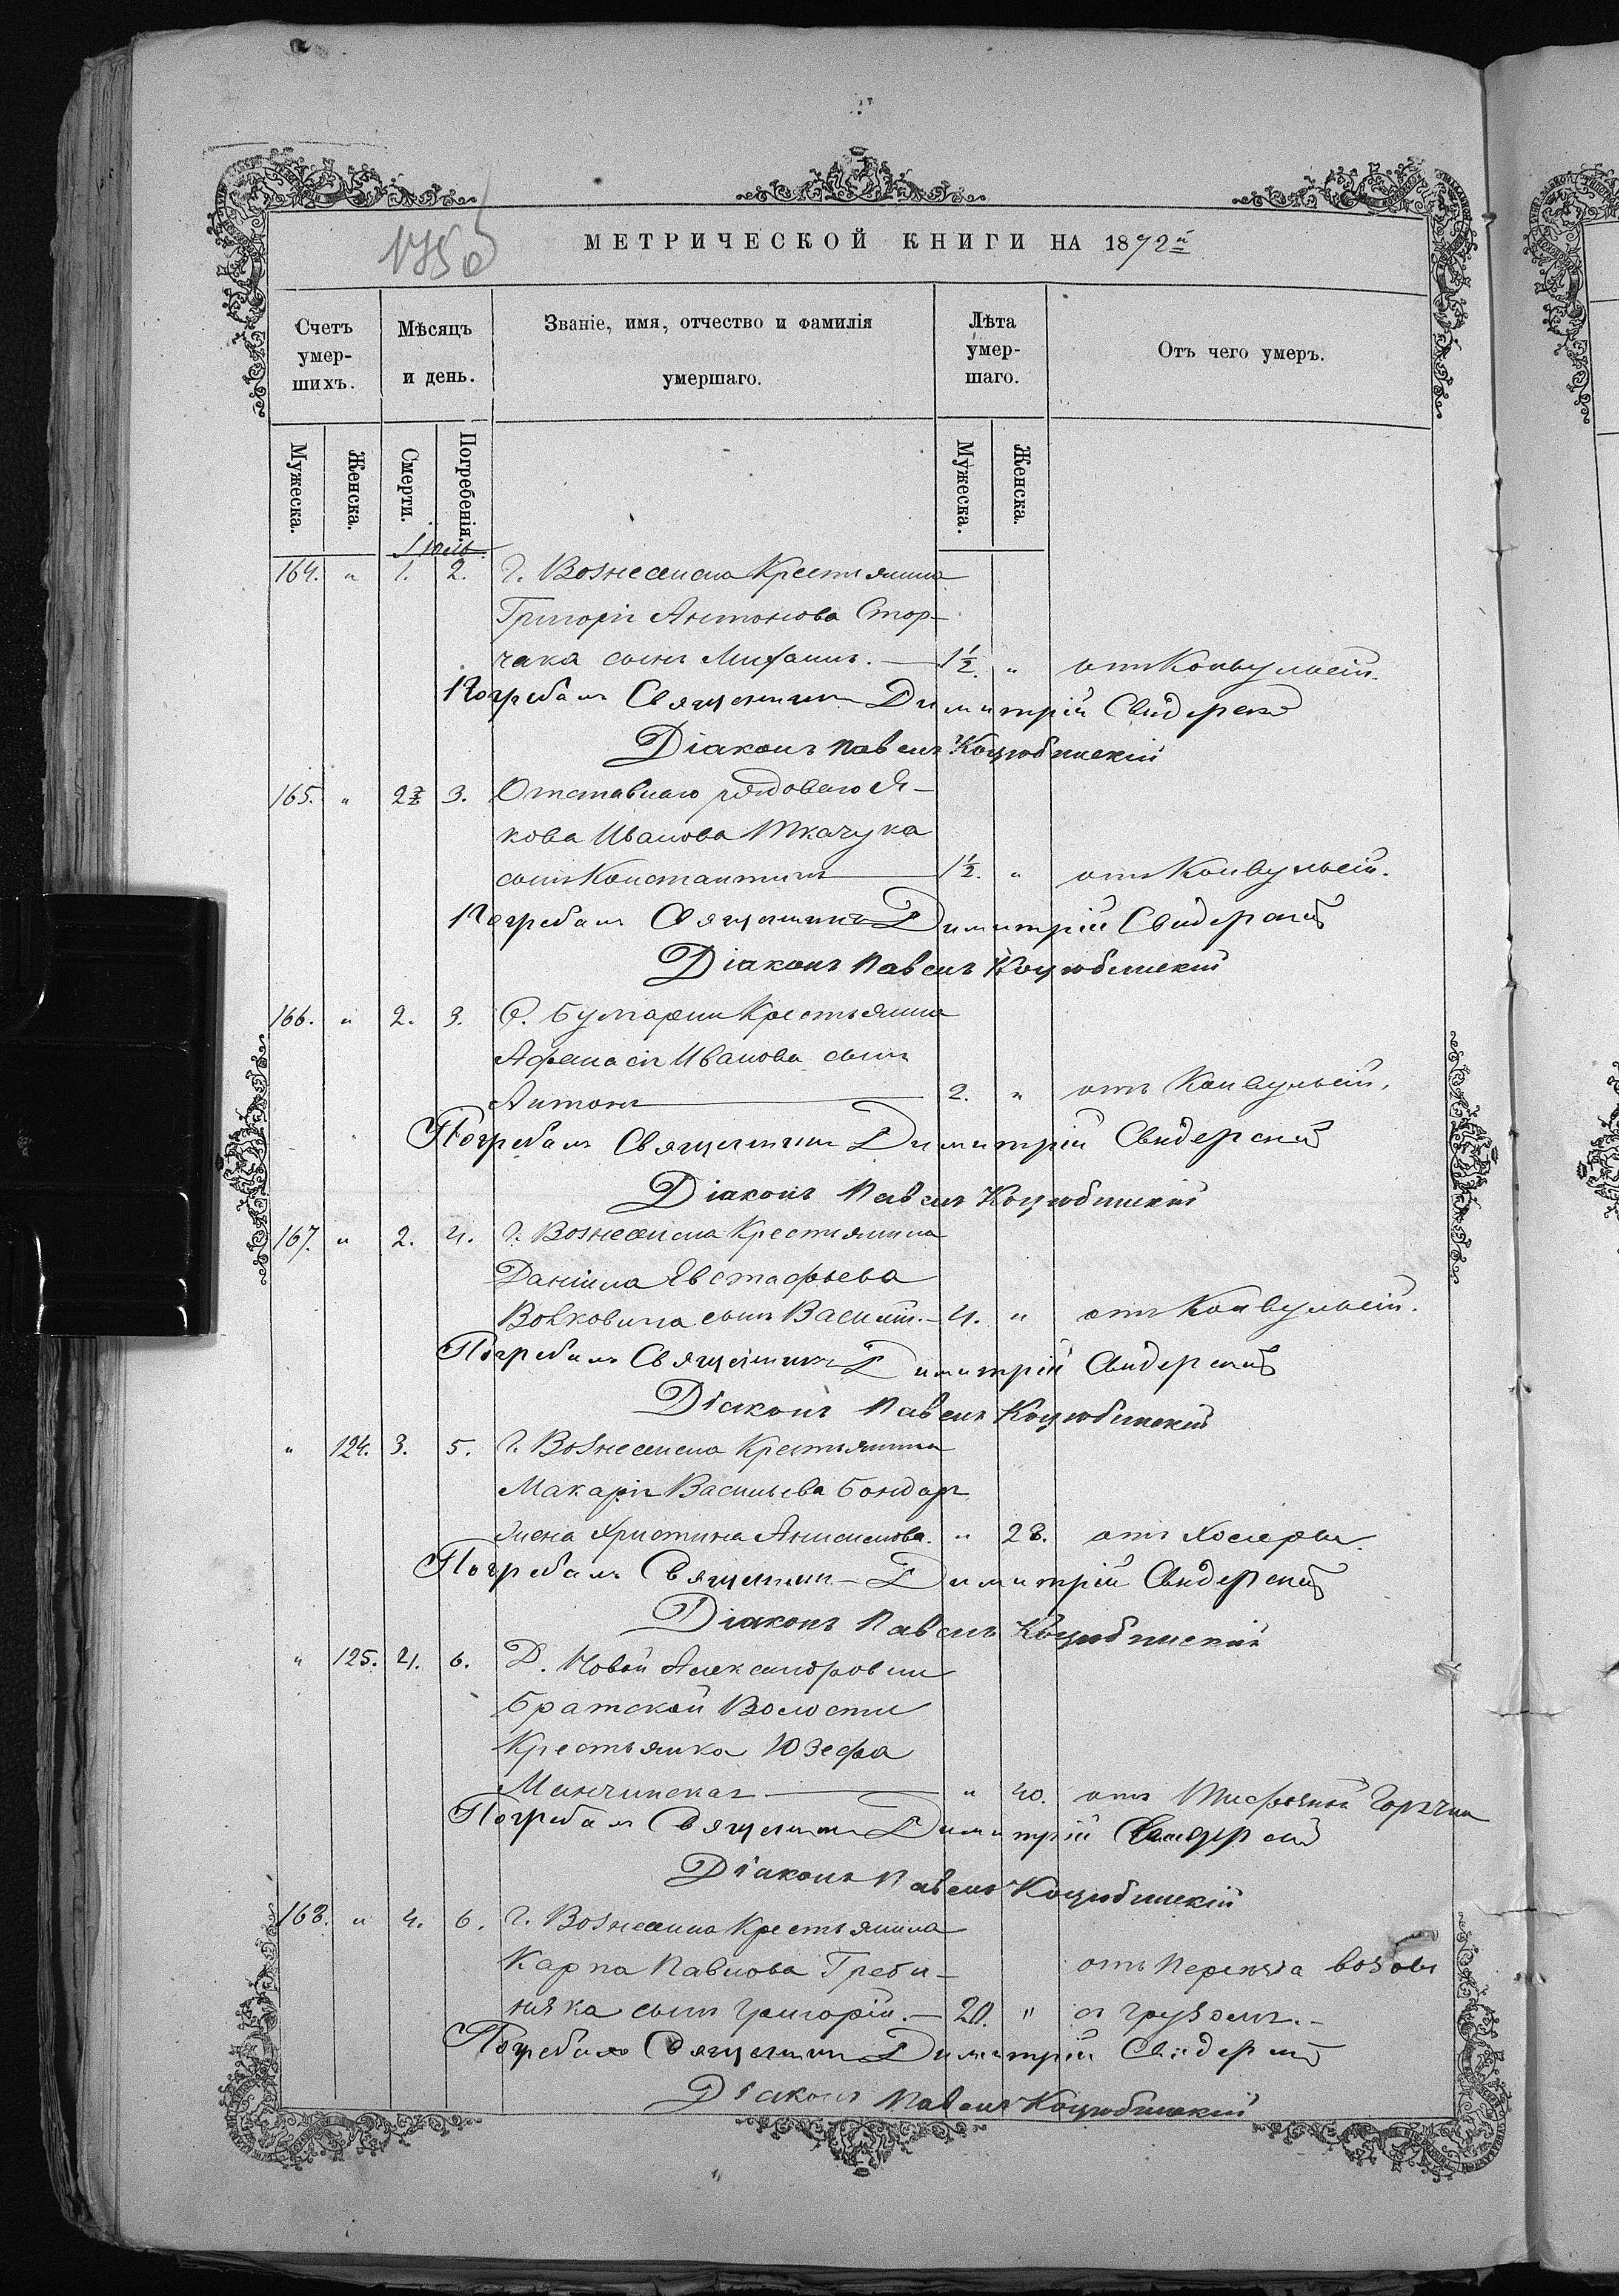 МЕТРИЧЕСКОЙ КНИГИ НА 1872й
Счетъ умер-шихъ. Мѣсяцъ и день. Званіе, имя, отчество и фамилія умершаго. Лѣта умер-шаго. Отъ чего умеръ.
Мужеска. Женска. Смерти. Погребенія. Мужеска. Женска.
Іюль.
164. " 1. 2. Г. Вознесенска Крестьянина
Григорія Антонова Стор-
чака сынъ Митафанъ. 1½. " отъ Конвульсій.
Погребалъ Священникъ Димитрій Свидерскій
Діаконъ Павелъ Коцюбинскій
165. " 2 3. Отставнаго рядоваго Я-
кова Иванова Ткачука
сынъ Константинъ 1½. " отъ Конвульсій.
Погребалъ Священникъ Димитрій Свидерскій
Діаконъ Павелъ Коцюбинскій
166. " 2. 3. С. Булгарки Крестьянина
Афанасія Иванова сынъ
Антонъ 2. " отъ Конвульсій.
Погребалъ Священникъ Димитрій Свидерскій
Діаконъ Павелъ Коцюбинскій
167. " 2. 4. Г. Вознесенска Крестьянина
Даніила Евстафьева
Вовковича сынъ Василій. 4. " отъ Конвульсій.
Погребалъ Священникъ Димитрій Свидерскій
Діаконъ Павелъ Коцюбинскій
" 124. 3. 5. Г. Вознесенска Крестьянина
Макарія Васильева Бондаря
жена Христина Анисимова. " 28. отъ Холеры.
Погребалъ Священникъ Димитрій Свидерскій
Діаконъ Павелъ Коцюбинскій
" 125. 4. 6. Д. Новой Александровки
Братской Волости
Крестьянка Юзефа
Манчинская " 40. отъ Тифозной Горячки
Погребалъ Священникъ Димитрій Свидерскій
Діаконъ Павелъ Коцюбинскій
168. " 4. 6. Г. Вознесенска Крестьянина
Карпа Павлова Греби-
няка сынъ Григорій. 20. " отъ Переѣзда возомъ
съ грузомъ.
Погребалъ Священникъ Димитрій Свидерскій
Діаконъ Павелъ Коцюбинскій